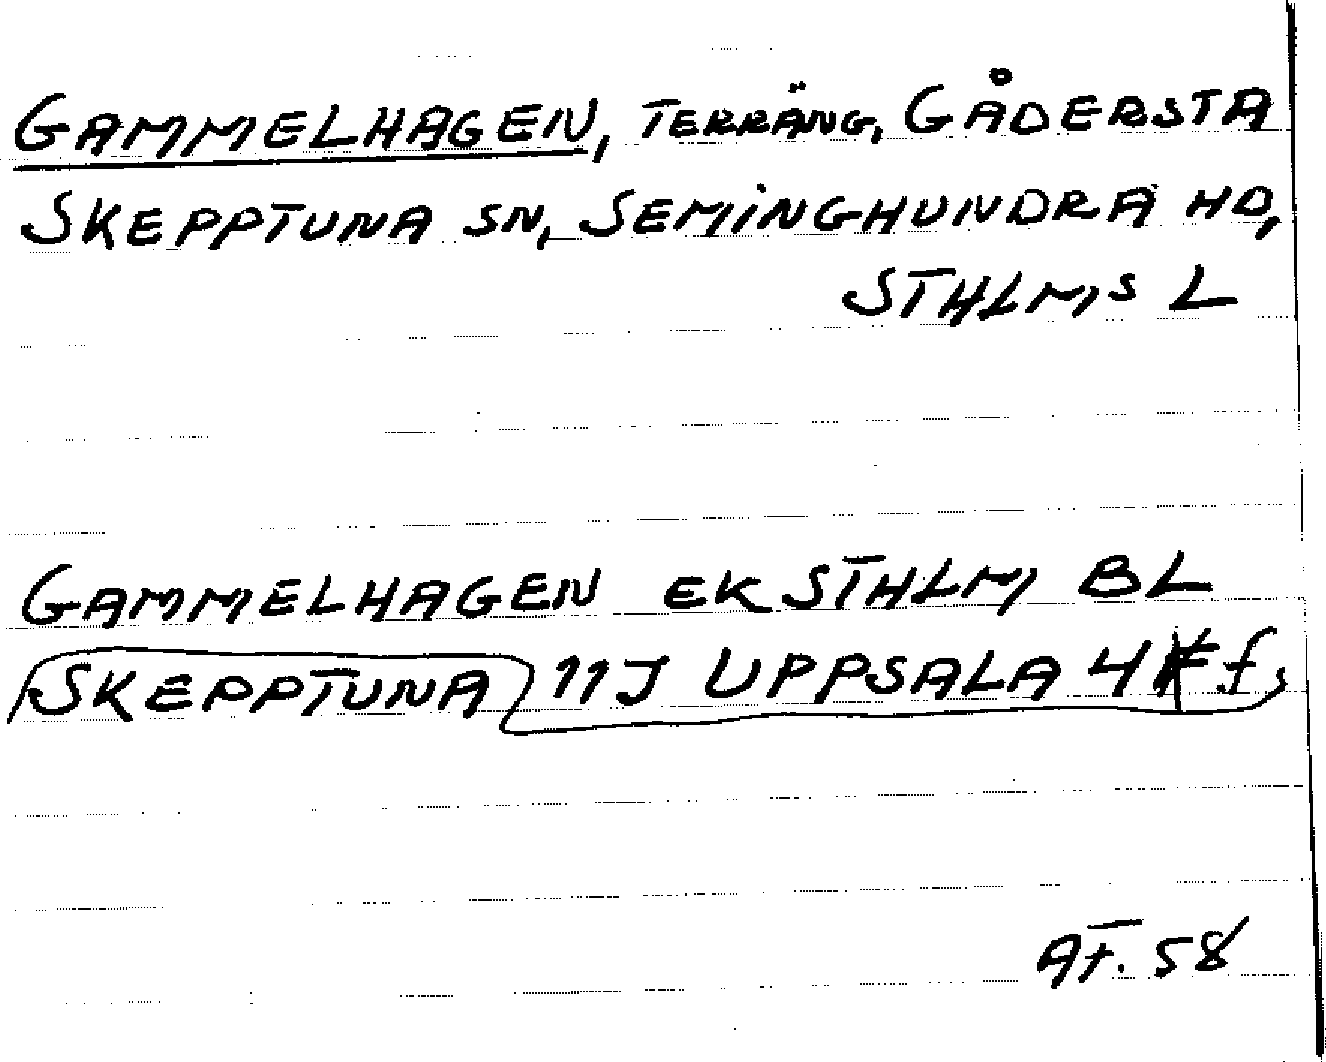 GAMMELHAGEN, TERRÄNG, GÅDERSTA
SKEPPTUNA SN, SEMINGHUNDRA HD,
STHLMS L
GAMMELHAGEN EK STHLM BL
SKEPPTUNA 11J UPPSALA 4 f,
AT. 58